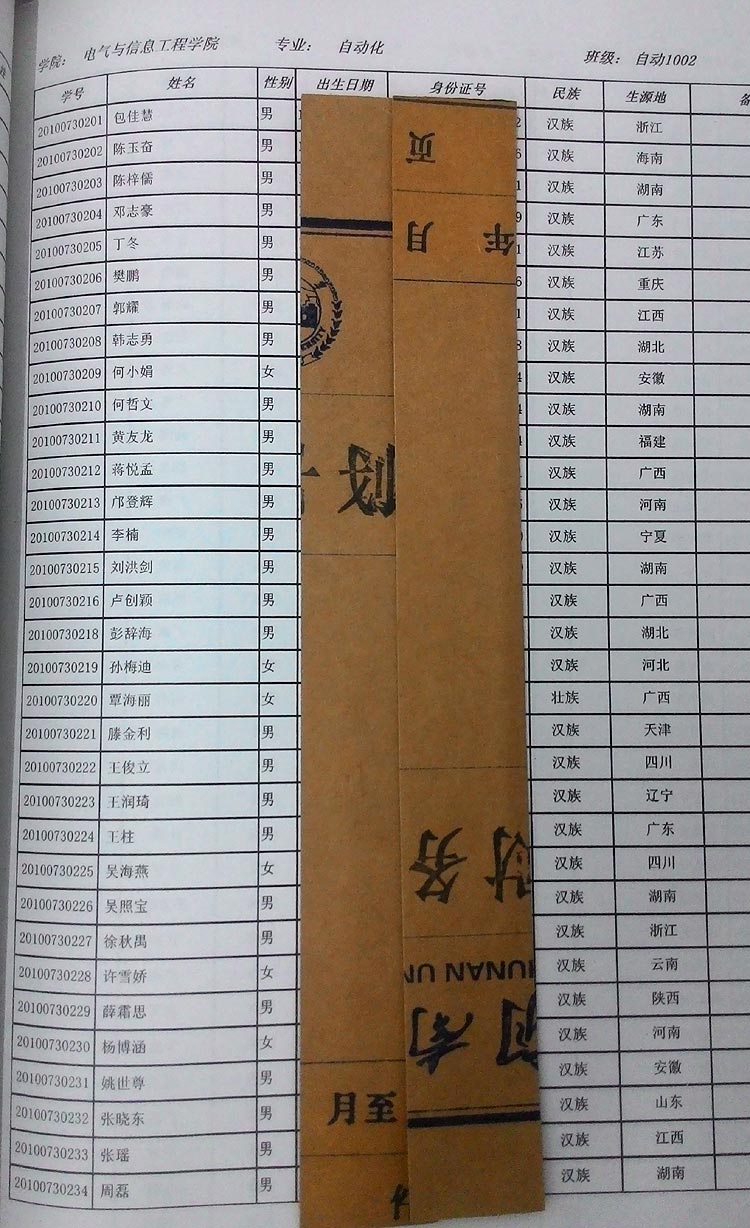 学院： 电气与信息工程学院 专业： 自动化 班级： 自动1002
学号 姓名 性别 出生日期 身份证号 民族 生源地
20100730201 包佳慧 男 2 汉族 浙江
20100730202 陈玉奋 男 6 汉族 海南
20100730203 陈梓儒 男 1 汉族 湖南
20100730204 邓志豪 男 9 汉族 广东
20100730205 丁冬 男 1 汉族 江苏
20100730206 樊鹏 男 6 汉族 重庆
20100730207 郭耀 男 1 汉族 江西
20100730208 韩志勇 男 汉族 湖北
20100730209 何小娟 女 4 汉族 安徽
20100730210 何哲文 男 4 汉族 湖南
20100730211 黄友龙 男 汉族 福建
20100730212 蒋悦孟 男 汉族 广西
20100730213 邝登辉 男 汉族 河南
20100730214 李楠 男 汉族 宁夏
20100730215 刘洪剑 男 汉族 湖南
20100730216 卢创颖 男 汉族 广西
20100730218 彭辞海 男 汉族 湖北
20100730219 孙梅迪 女 汉族 河北
20100730220 覃海丽 女 壮族 广西
20100730221 滕金利 男 汉族 天津
20100730222 王俊立 男 汉族 四川
20100730223 王润琦 男 汉族 辽宁
20100730224 王柱 男 汉族 广东
20100730225 吴海燕 女 汉族 四川
20100730226 吴照宝 男 汉族 湖南
20100730227 徐秋禺 男 汉族 浙江
20100730228 许雪娇 女 汉族 云南
20100730229 薛霜思 男 汉族 陕西
20100730230 杨博涵 女 汉族 河南
20100730231 姚世尊 男 汉族 安徽
20100730232 张晓东 男 汉族 山东
20100730233 张瑶 男 汉族 江西
20100730234 周磊 男 汉族 湖南
页
年 月
财务
HUNAN UN
湖南
月至